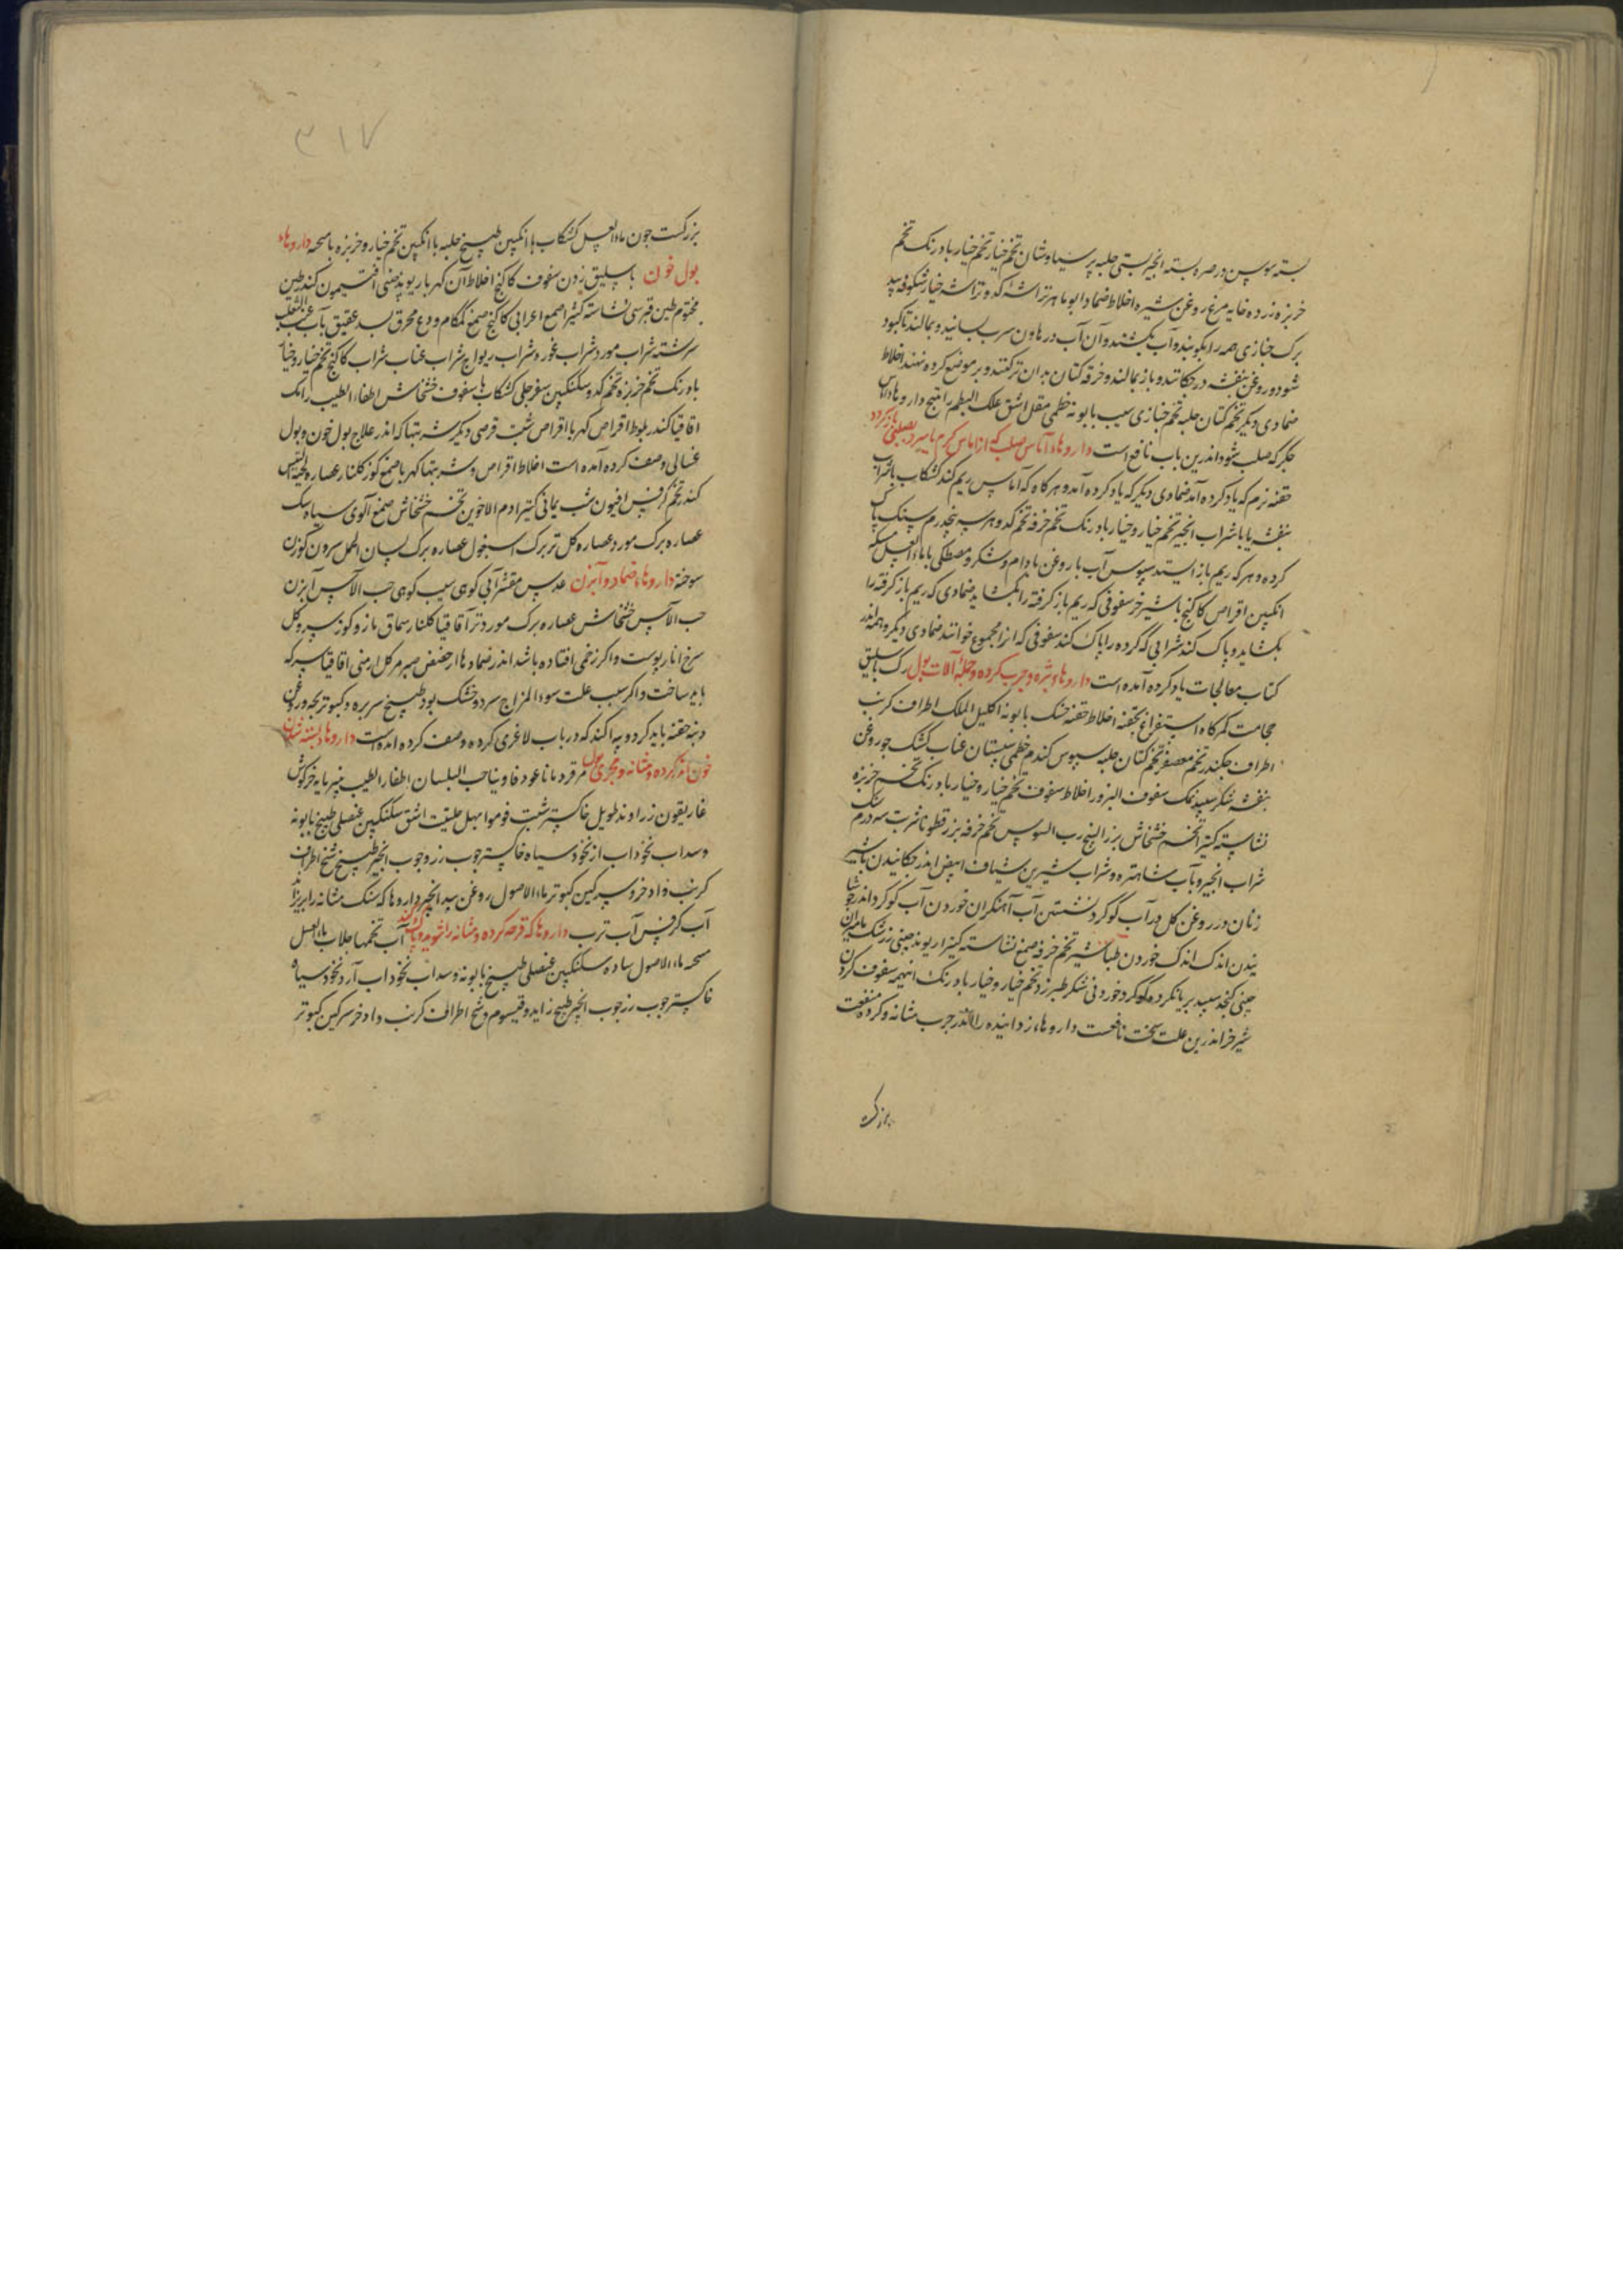 بسته سوس در صره بسته انجیر بستی حلبه پرسیاوشان تخم خیار تخم خیار بادرنک تخم
خربزه زرده خایه مرغ روغن شیره اخلاط ضماد ابو ماهر تراشه کدو تراشه خیار شکوفه بید
برک خبازی همه را بکوبند و آب بکشند و آن آب در هاون سرب بسایند و بمالند تا کبود
شود و روغن بنفشه در چکانند و باز بمالند و خرقه کتان بدان تر کنند و بر موضع کرده نهند اخلاط
ضمادی دیکر تخم کتان حلبه تخم خبازی سیب بابونه خطمی مقل اشق علک البطم راتینج داروهاء آماس
جکر که صلب شود اندرین باب نافع است داروهاء آماس صلب که از آماس کرم یا سرد بصلبی باز کردد
حقنه نرم که یاد کرده آمد ضمادی دیکر که یاد کرده آمد و هرکاه که آماس ریم کند کشکاب با شراب
بنفشه یا با شراب انجیر تخم خیار و خیار بادرنک تخم خرفه تخم کدو هر سه پنجدرم سنک پاک
کرده و هر که ریم باز ایستد سپوس آب با روغن بادام و شکر و مصطکی با ماء العسل مسکه
انکبین اقراص کاکنج با شیر خر سفوفی که ریم باز کرفته را بکشاید ضمادی که ریم باز کرفته را
بکشاید و پاک کند شرابی که کرده را پاک کند سفوفی که انرا مجموع خوانند ضمادی دیکر و همه اندر
کتاب معالجات یاد کرده آمده است داروهاء بثره و جرب کرده و جمله آلات بول رک باسلیق
حجامت کمرکاه استفراغ بحقنه اخلاط حقنه خسک بابونه اکلیل الملک اطراف کرنب
اطراف چکندر تخم معصفر تخم کتان حلبه سپوس کندم خطمی سپستان عناب کشک جو روغن
بنفشه شکر سپید نمک سفوف البزور اخلاط سفوف تخم خیار و خیار بادرنک تخم خربزه
نشاسته کتیرا تخم خشخاش بزر البنج رب السوس تخم خرفه بزر قطونا شربت سه درم سنک
شراب انجیر و آب شاهتره و شراب شیرین شیاف ابیض اندر چکانیدن با شیر
زنان در روغن کل در آب کوکرد نشستن آب آهنکران خوردن آب کوکرد اندر
اندک اندک خوردن طباشیر تخم خرفه صمغ نشاسته کتیرا ریوند چینی زرشک
چینی کنجد سپید بریان کرده کوکرد خوردنی شکر طبرزد تخم خیار و خیار بادرنک اینهمه سفوف کردن
شیر خر اندرین علت سخت نافعست داروهاء زداینده را اندر جرب مثانه و کرده منفعت
بزرکست
۳۱۷
بزرکست چون ماء العسل کشکاب با انکبین طبیخ حلبه با انکبین تخم خیار و خربزه با میبه داروهاء
بول خون باسلیق زدن سفوف کاکنج اخلاط آن کهربا ریوند چینی افتیمون کندر طین
مختوم طین قبرسی نشاسته کتیرا صمغ اعرابی کاکنج صمغ کمکام ودع محرق بسد عقیق بآب عنب الثعلب
سرشته شراب مورد شراب غوره شراب ریواج شراب عناب شراب کاکنج تخم خیار و خیار
بادرنک تخم خربزه تخم کدو سکنکبین سفرجلی کشکاب با سفوف خشخاش اظفار الطیب رامک
اقاقیا کندر بلوط اقراص کهربا اقراص شبت قرصی دیکر شربتها که اندر علاج بول خون و بول
غسالی وصف کرده آمده است اخلاط اقراص و شربتها کهربا صمغ کوز کلنار عصاره لحیة التیس
کندر تخم کرفس افیون شب یمانی کتیرا دم الاخوین تخم خشخاش صمغ آلوی سیاه سک
عصاره برک مورد عصاره کل تر برک اسبغول عصاره برک لسان الحمل سرون کوزن
سوخته داروهاء ضماد و آبزن عدس مقشر آبی کوهی سیب کوهی حب الآس آبزن
حب الآس خشخاش عصاره برک مورد تر آقاقیا کلنار سماق مازو کوز سرو کل
سرخ انار پوست و اکر زخمی افتاده باشد اندر ضمادها حضض صبر مر کل ارمنی اقاقیا سرکه
باید ساخت و اکر سبب علت سوء المزاج سرد و خشک بود طبیخ سر بره و کبوتر بچه و روغن
دنبه حقنه باید کرد و بپه اکند که در باب لاغری کرده وصف کرده آمده است داروهاء بسته شدن
خون اندر کرده و مثانه و مجری بول مر قردمانا عود فاوینا حب البلسان اظفار الطیب پنیر مایه خرکوش
غاریقون زراوند طویل خاکستر شبت فوموا مهل حلتیت اشق سکنکبین عنصلی طبیخ بابونه
و سداب نخوداب از نخود سیاه خاکستر چوب رز و چوب انجیر طبیخ شیح اطراف
کرنب داد خر و سرکین کبوتر ماء الاصول روغن بید انجیر داروها که سنک مثانه را بریزاند
آب کرفس آب ترب داروها که قرحه کرده و مثانه را بشوید و پاک کند آب تخمها جلاب ماء العسل
میبه ماء الاصول ساده سکنکبین عنصلی طبیخ بابونه و سداب نخوداب آرد نخود سیاه
خاکستر چوب رز چوب انجیر طبیخ زاید و قیسوم و شیح اطراف کرنب داد خر سرکین کبوتر